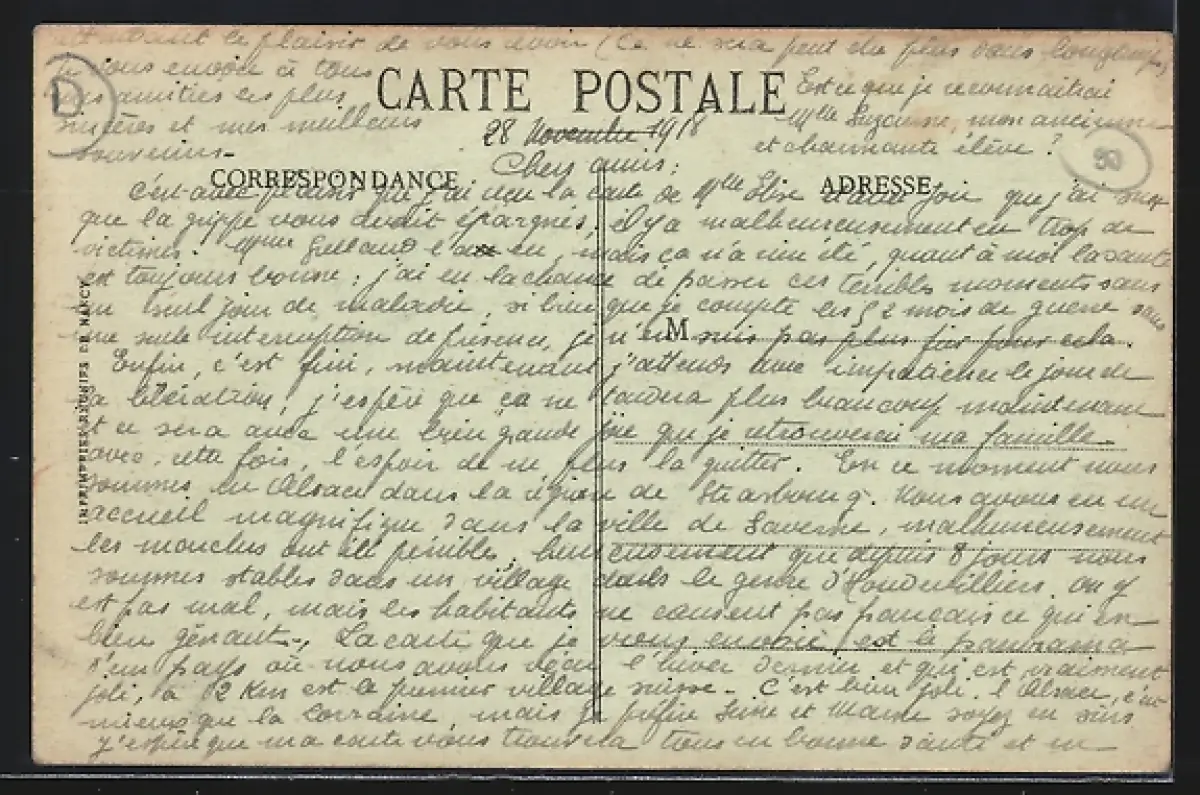 attendant le plaisir de vous avoir (Ce ne sera peut être plus dans longtemps)
je vous envoie à tous
mes amitiés les plus
sincères et mes meilleurs
souvenirs.
D
CARTE POSTALE
Est ce que je reconnaitrai
Mlle Suzanne, mon ancienne
et charmante élève ?
50
28 Novembre 1918
Chers amis :
CORRESPONDANCE
ADRESSE
M
IMPRIMERIES RÉUNIES DE NANCY
C'est avec plaisir que j'ai reçu la carte de Mlle Elise et avec joie que j'ai su
que la grippe vous avait épargnés, il y a malheureusement eu trop de
victimes. Mme l'a eu, mais ça n'a rien été, quant à moi la santé
est toujours bonne ; j'ai eu la chance de passer ces terribles moments sans
un seul jour de maladie, si bien que je compte les 52 mois de guerre sans
une seule interruption de présence, je n'en suis pas plus fier pour cela.
Enfin, c'est fini, maintenant j'attends avec impatience le jour de
la libération, j'espère que ça ne tardera plus beaucoup maintenant
et ce sera avec une bien grande joie que je retrouverai ma famille
avec, cette fois, l'espoir de ne plus la quitter. En ce moment nous
sommes en Alsace dans la région de Strasbourg. Nous avons eu un
accueil magnifique dans la ville de Saverne, malheureusement
les marches ont été pénibles, heureusement que depuis 8 jours nous
sommes stables dans un village dans le genre d'Houdevilliers on y
est pas mal, mais les habitants ne causent pas français ce qui est
bien gênant. La carte que je vous envoie est le panorama
d'un pays où nous avons vécu l'hiver dernier et qui est vraiment
joli, à 2 Km est le premier village suisse - C'est bien joli l'Alsace, c'est
mieux que la Lorraine, mais je préfère Seine et Marne soyez en sûrs
J'espère que ma carte vous trouvera tous en bonne santé et en